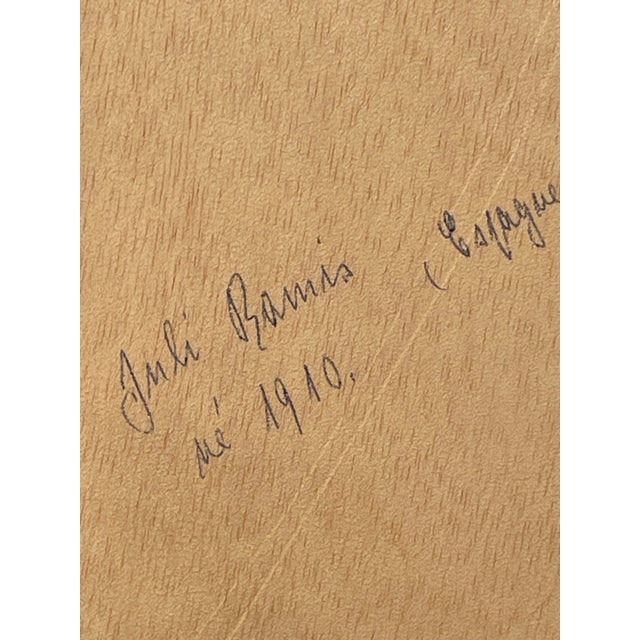 Juli Ramis (Espagne
né 1910.